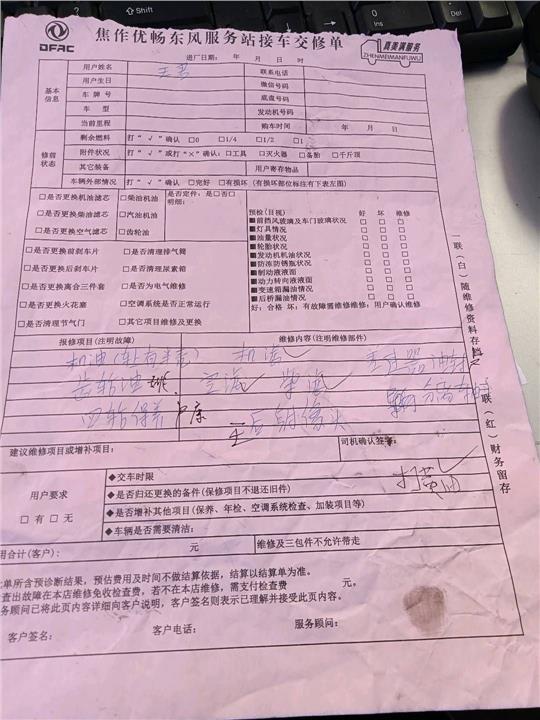 Shift
Ctrl
Ins
Del
DFAC
焦作优畅东风服务站接车交修单
真美满服务
ZHENMEIMANFUWU
进厂日期： 年 月 日 时
基本信息
用户姓名
联系电话
用户生日
微信号码
车 牌 号
底盘号码
车 型
发动机号码
当前里程
购车时间 年 月 日
修前状态
剩余燃料 打“√”确认 □0 □1/4 □1/2 □1
附件状况 打“√”或打“×”确认：□工具 □灭火器 □备胎 □千斤顶
其它装备 用户寄存物品
车辆外部情况 打“√”确认 □完好 □有损坏（有损坏部位标注有下表左图）
□是否更换机油滤芯 □柴油机油
是否定件：是□否□
明细：
□是否更换柴油滤芯 □汽油机油
□是否更换空气滤芯 □齿轮油
□是否更换前刹车片 □是否清理排气筒
□是否更换后刹车片 □是否清理尿素箱
□是否更换离合三件套 □是否为电气维修
□是否更换火花塞 □空调系统是否正常运行
□是否清理节气门 □其它项目维修及更换
预检（目视） 好 坏 维修
■前挡风玻璃及车门玻璃状况 □ □ □
■灯具情况 □ □ □
■油量状况 □ □ □
■轮胎状况 □ □ □
■发动机机油状况 □ □ □
■防冻防锈瓶状况 □ □ □
■制动液液面 □ □ □
■动力转向液液面 □ □ □
■变速箱漏油情况 □ □ □
■后桥漏油情况 □ □ □
好：合格 坏：有故障需维修维修：用户确认维修
报修项目（注明故障） 维修内容（注明维修部件）
机油 机滤✓
齿轮油 空滤✓ 柴滤✓
四轮保养
打黄油✓
建议维修项目或增补项目：
司机确认签字：
用户要求
□有 □无
◆交车时限
◆是否归还更换的备件（保修项目不退还旧件）
◆是否增补其他项目（保养、年检、空调系统检查、加装项目等）
◆车辆是否需要清沽：
用合计（客户）： 元 维修及三包件不允许带走
单所含预诊断结果，预估费用及时间不做结算依据，结算以结算单为准。
查出故障在本店维修免收检查费，若不在本店维修，需支付检查费 元。
务顾问已将此页内容详细向客户说明，客户签名则表示已理解并接受此页内容。
客户签名： 客户电话： 服务顾问：
一联（白）随维修资料存档
联（红）财务留存